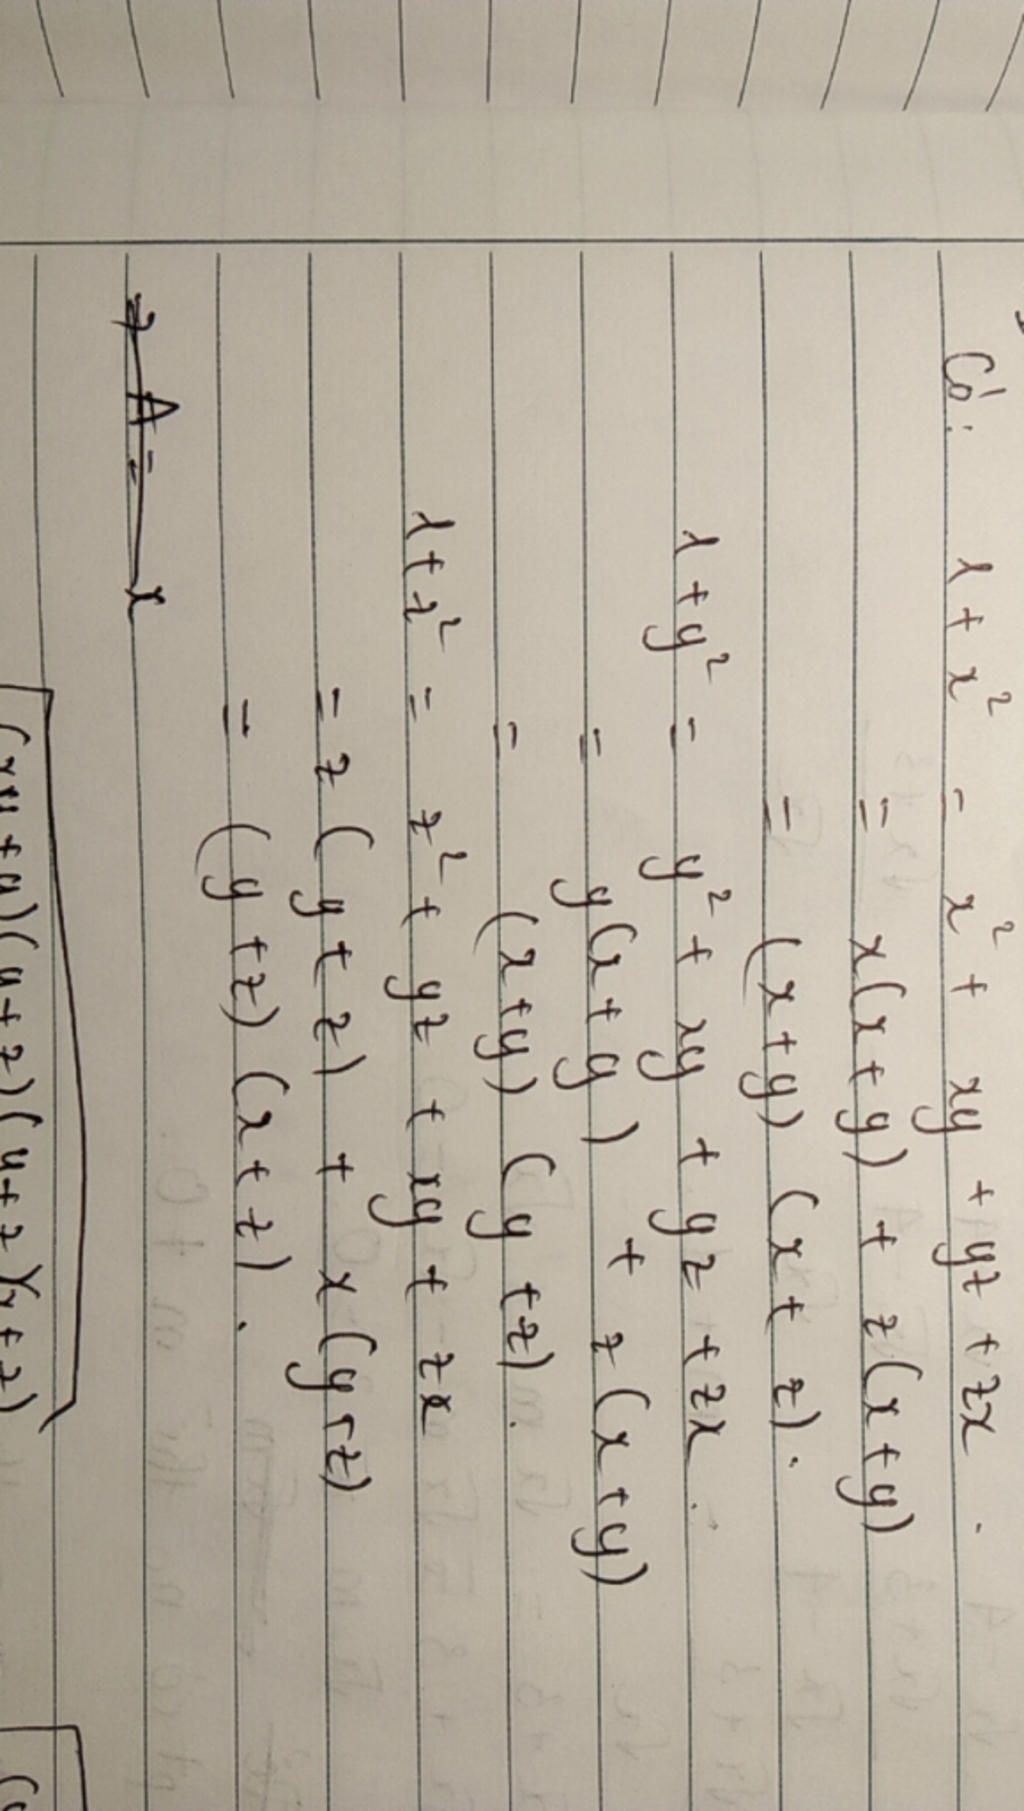 Có: 1 + x² = x² + xy + yz + zx.
= x(x + y) + z(x + y)
= (x + y) (x + z).
1 + y² = y² + xy + yz + zx.
= y(x + y) + z(x + y)
= (x + y) (y + z).
1 + z² = z² + yz + xy + zx
= z(y + z) + x(y + z)
= (y + z) (x + z).
⇒ A = x
√(x+y)(y+z)(x+z)